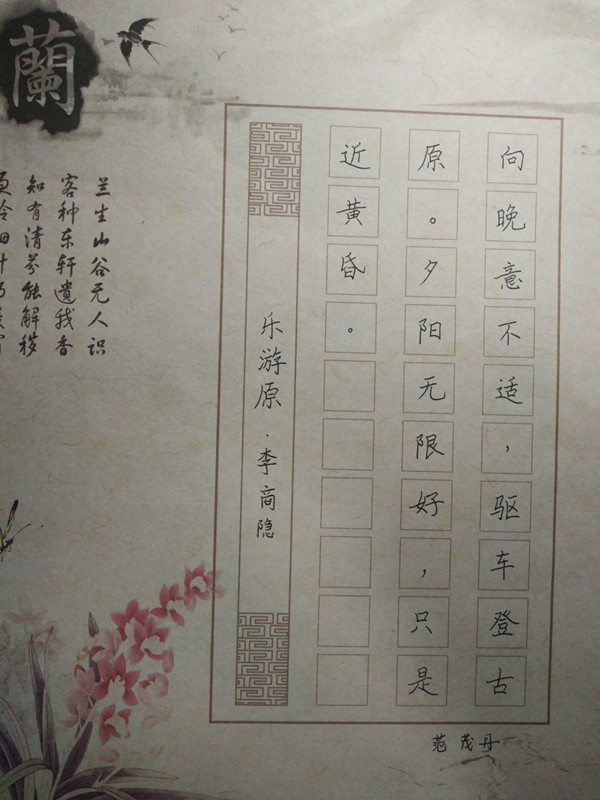 向晚意不适，驱车登古
原。夕阳无限好，只是
近黄昏。
乐游原·李商隐
范茂丹
蘭
兰生山谷无人识
客种东轩遗我香
知有清芬能解秽